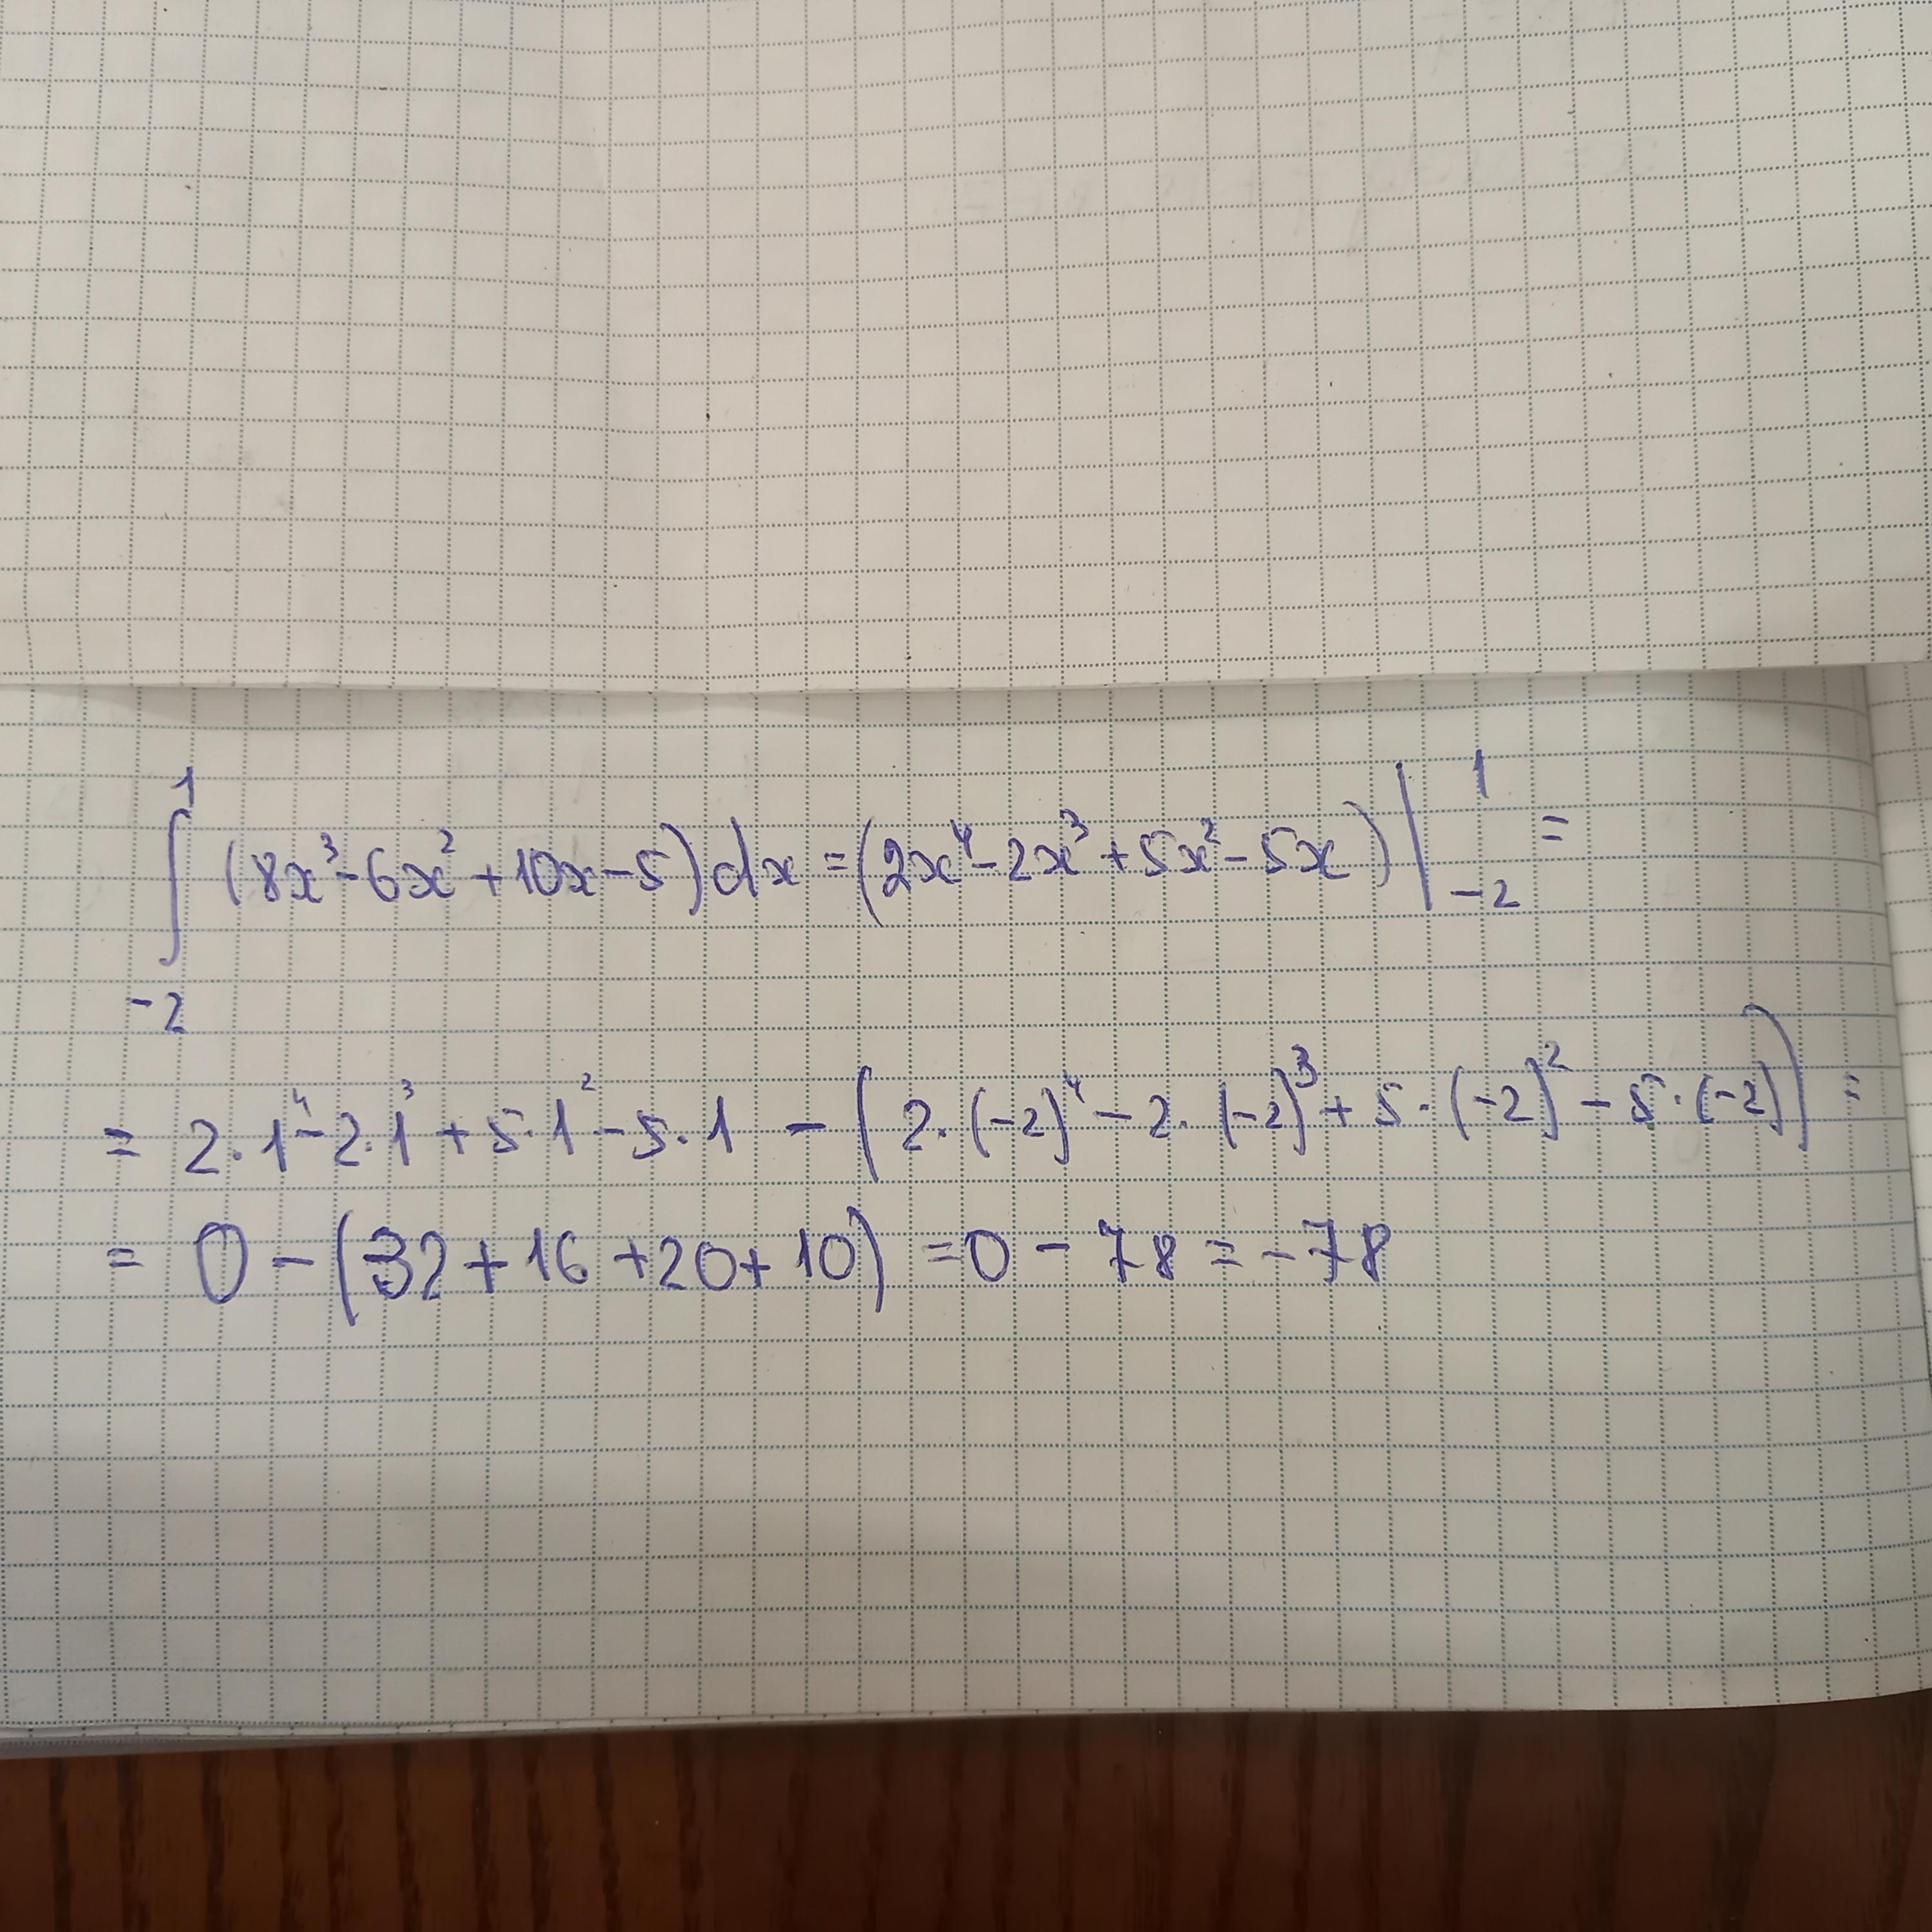 ∫₋₂¹ (8x³-6x²+10x-5)dx = (2x⁴-2x³+5x²-5x)|₋₂¹ =
= 2·1⁴-2·1³+5·1²-5·1 - (2·(-2)⁴-2·(-2)³+5·(-2)²-5·(-2)) =
= 0-(32+16+20+10) =0-78=-78